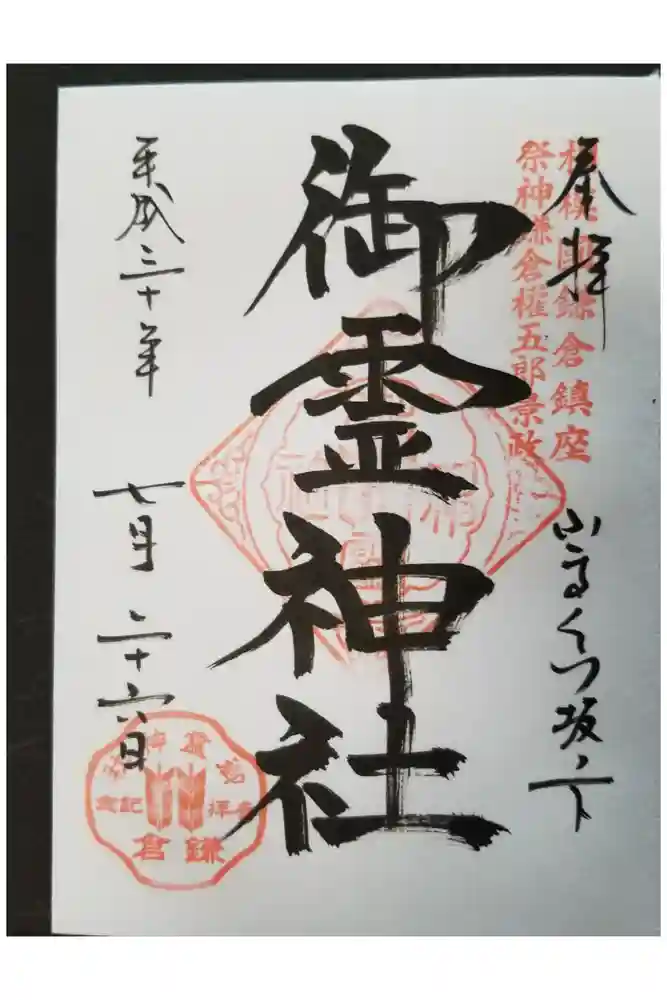 奉拝
相模国鎌倉鎮座
祭神鎌倉權五郎景政
坂ノ下
御霊神社
平成三十年
七月二十六日
参拝
記念
鎌倉